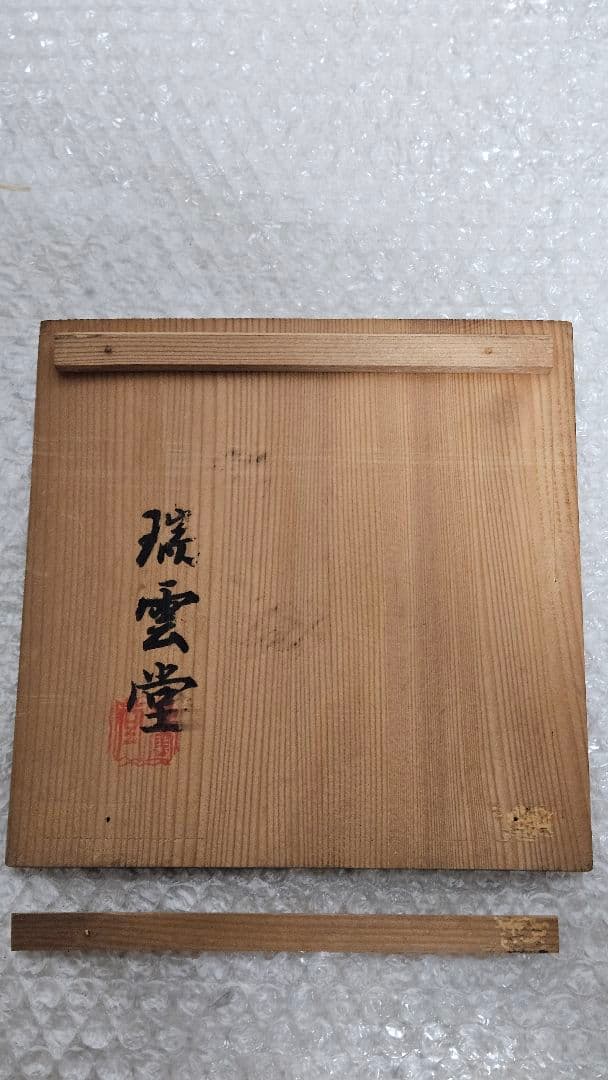 瑞雲堂